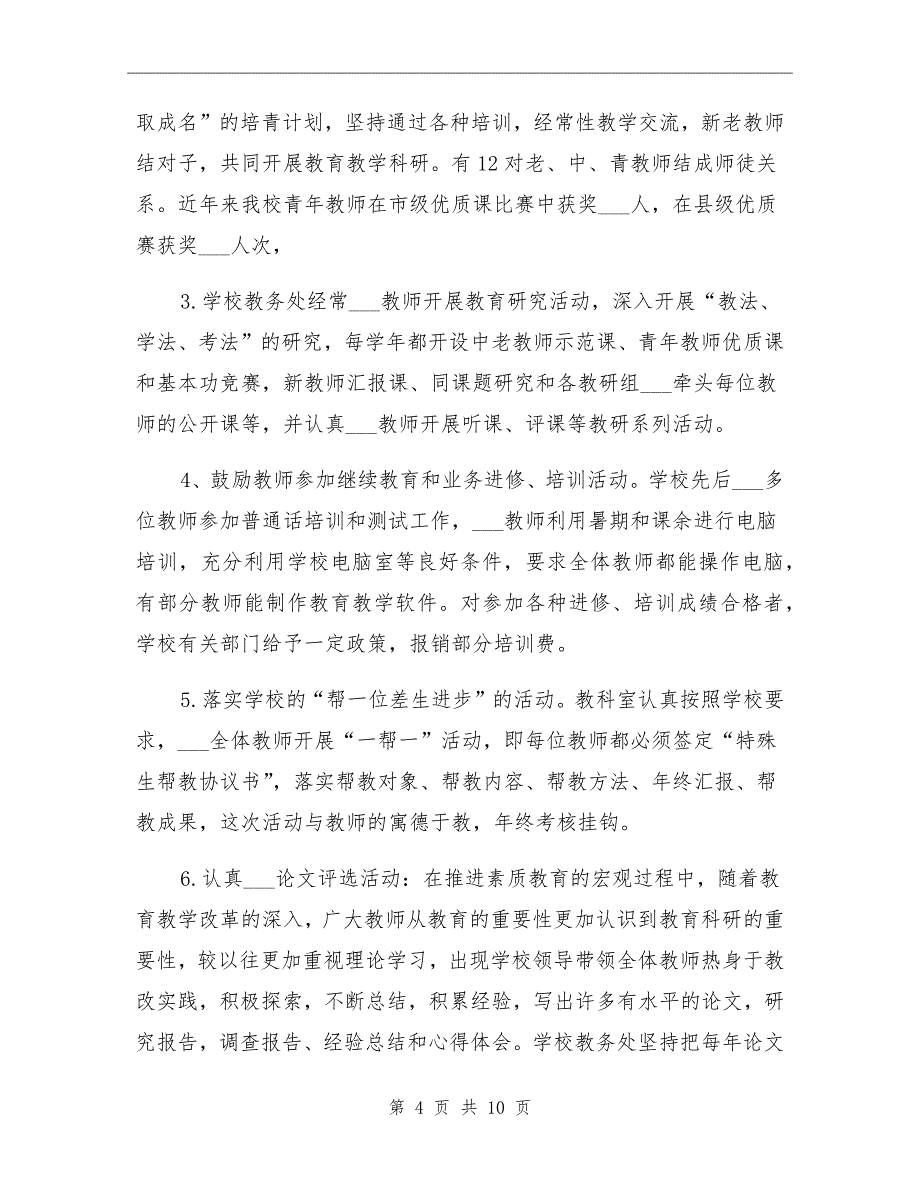 取成名”的培青计划，坚持通过各种培训，经常性教学交流，新老教师
结对子，共同开展教育教学科研。有 12 对老、中、青教师结成师徒关
系。近年来我校青年教师在市级优质课比赛中获奖___人，在县级优质
赛获奖___人次，
3.学校教务处经常___教师开展教育研究活动，深入开展“教法、
学法、考法”的研究，每学年都开设中老教师示范课、青年教师优质课
和基本功竞赛，新教师汇报课、同课题研究和各教研组___牵头每位教
师的公开课等，并认真___教师开展听课、评课等教研系列活动。
4、鼓励教师参加继续教育和业务进修、培训活动。学校先后___多
位教师参加普通话培训和测试工作，___教师利用暑期和课余进行电脑
培训，充分利用学校电脑室等良好条件，要求全体教师都能操作电脑，
有部分教师能制作教育教学软件。对参加各种进修、培训成绩合格者，
学校有关部门给予一定政策，报销部分培训费。
5.落实学校的“帮一位差生进步”的活动。教科室认真按照学校要
求，___全体教师开展“一帮一”活动，即每位教师都必须签定“特殊
生帮教协议书”，落实帮教对象、帮教内容、帮教方法、年终汇报、帮
教成果，这次活动与教师的寓德于教，年终考核挂钩。
6.认真___论文评选活动：在推进素质教育的宏观过程中，随着教
育教学改革的深入，广大教师从教育的重要性更加认识到教育科研的重
要性，较以往更加重视理论学习，出现学校领导带领全体教师热身于教
改实践，积极探索，不断总结，积累经验，写出许多有水平的论文，研
究报告，调查报告、经验总结和心得体会。学校教务处坚持把每年论文
第 4 页 共 10 页